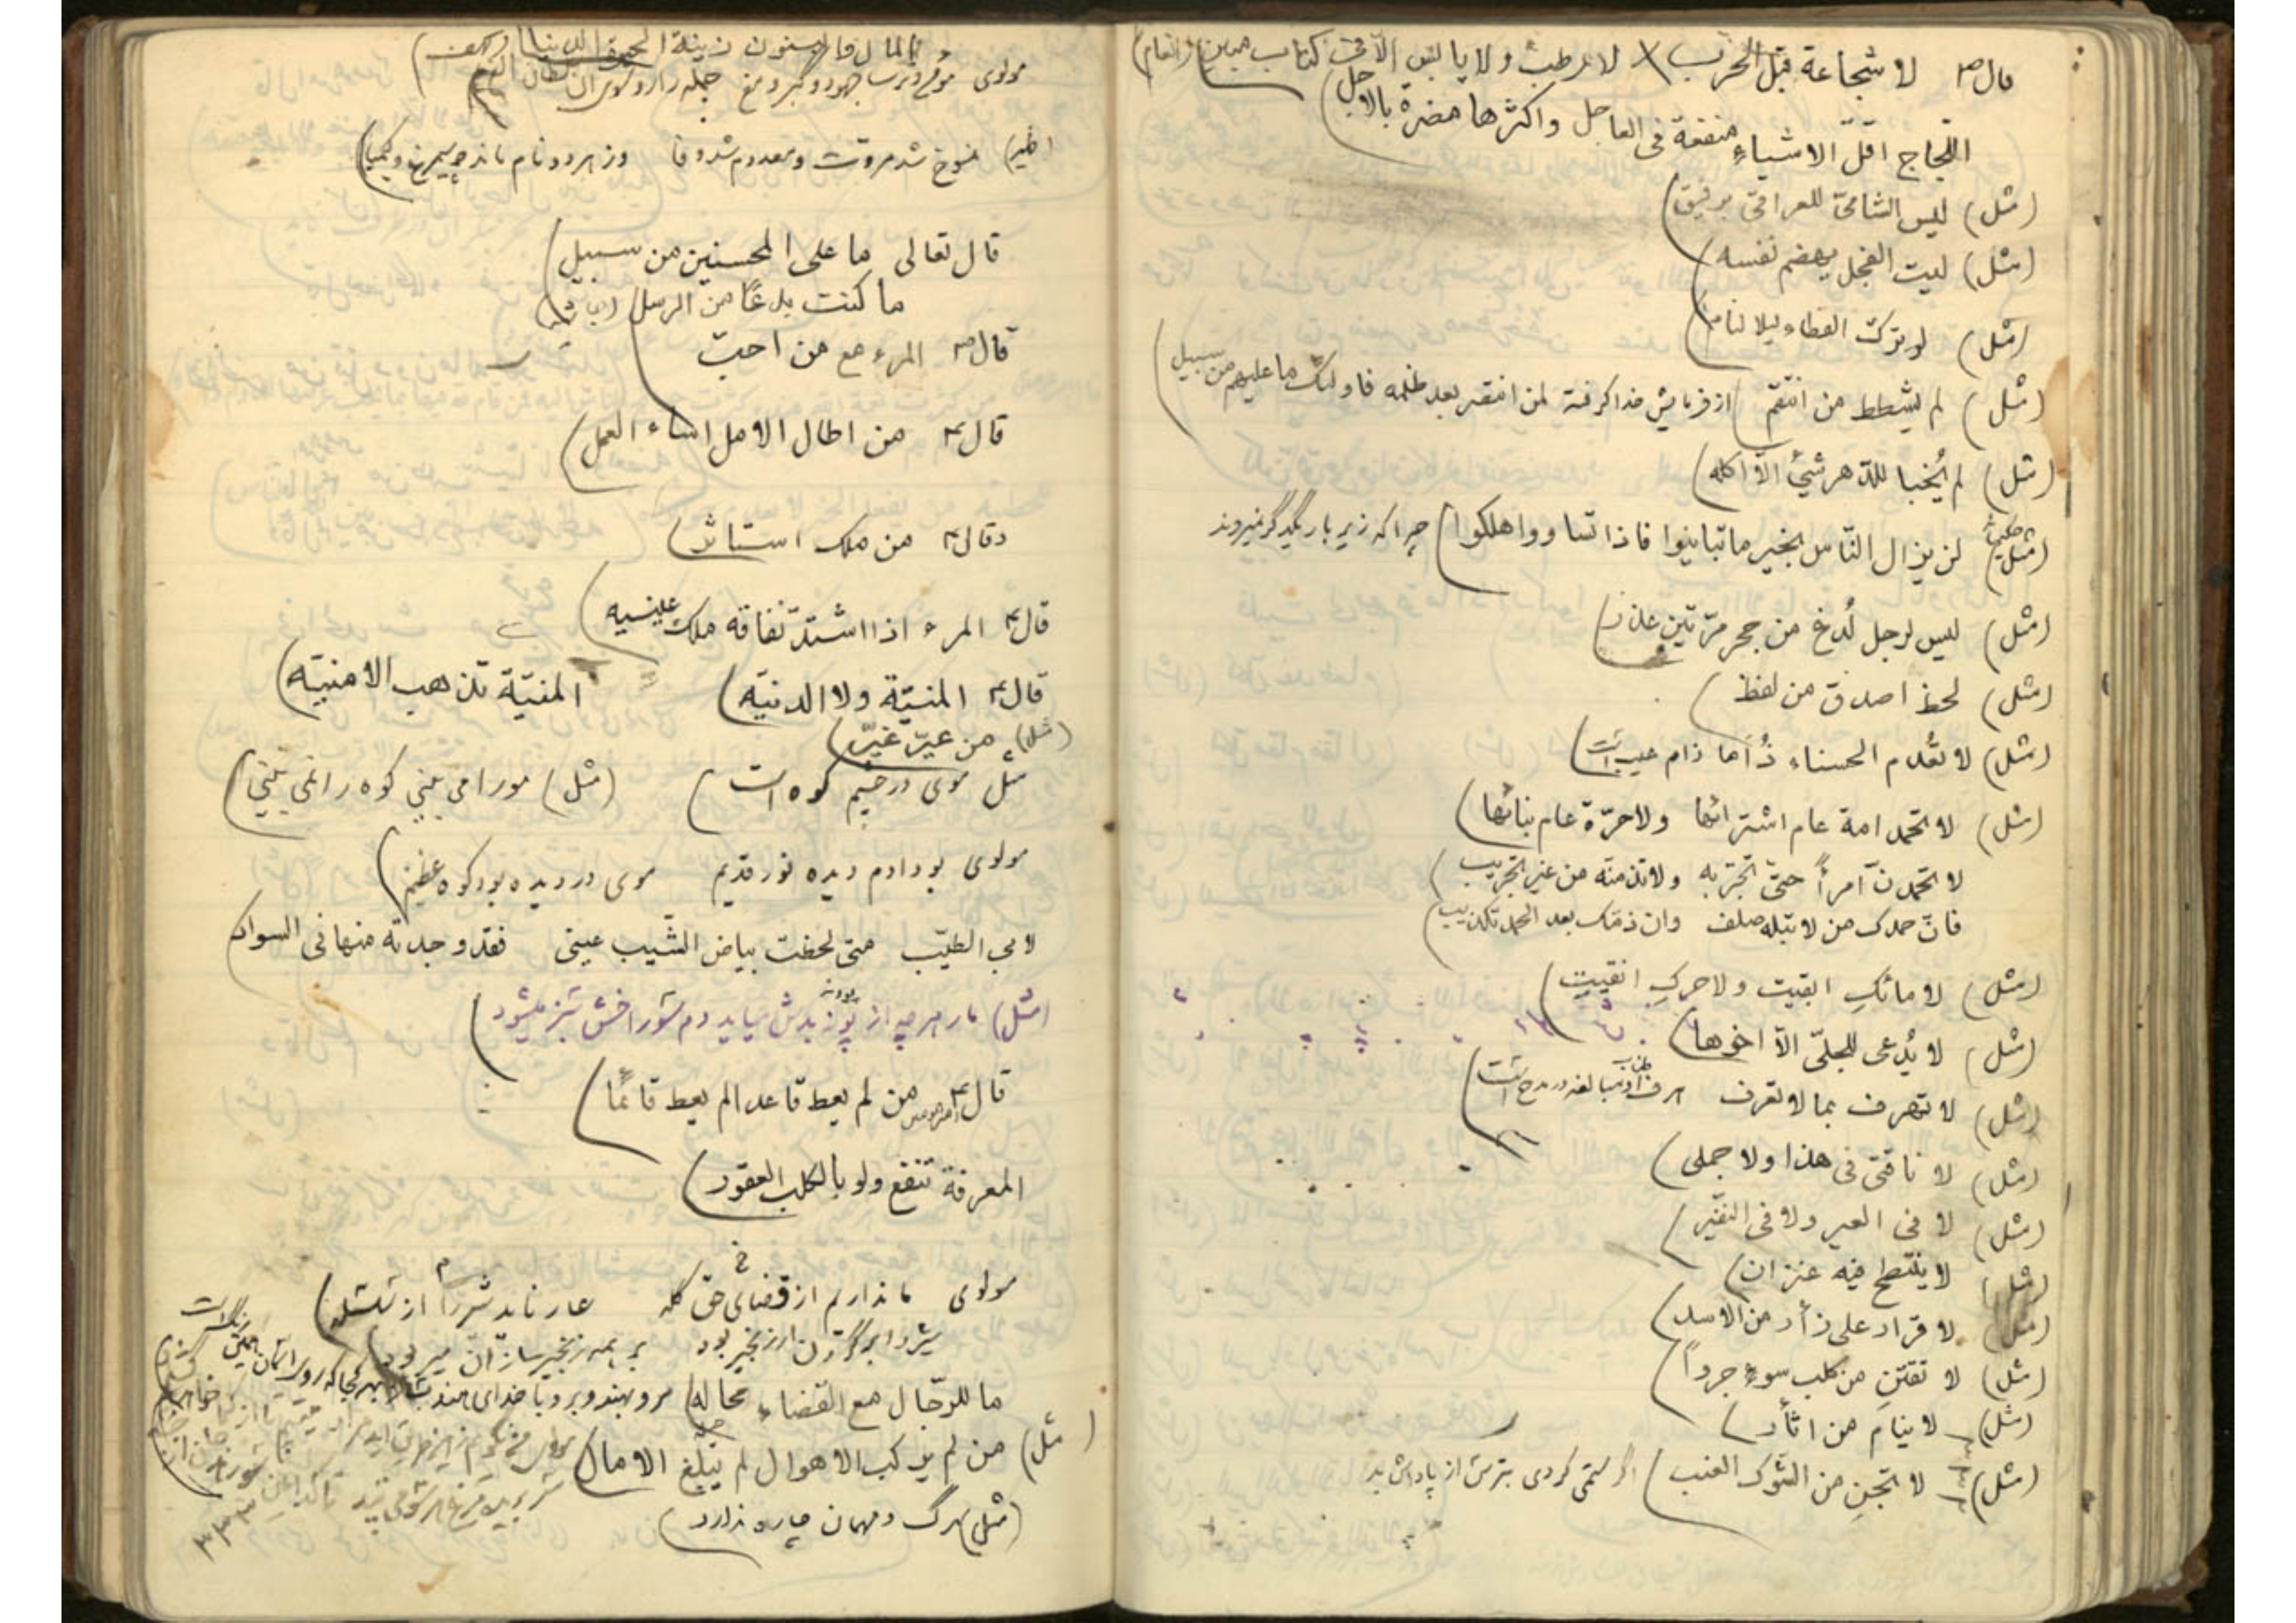 قال ص لا شجاعة قبل الحرب لا رطب ولا يابس الا فى كتاب مبين (انعام)
اللّجاج اقلّ الاشياء منفعة فى العاجل واكثرها مضرة بالاجل
(مثل) ليس الشامىّ للعراقىّ برفيق
(مثل) ليت الفجل يهضم نفسه
(مثل) لو ترك القطاء ليلا لنام
(مثل) لم يشطط من انتقم از فرمايش خدا گرفته لمن انتصر بعد ظلمه فاولئك ما عليهم من سبيل
(مثل) لم يُخبا للدّهر شيئ الّا اكله
(مثل) لن يزال النّاس بخير ما تباينوا فاذا تساووا هلكوا چرا كه زير بار يكديگر نميروند
(مثل) ليس لرجل لُدغ من جحر مرّتين عذر
(مثل) لحظ اصدق من لفظ
(مثل) لا تعدم الحسناء ذاما ذام عيب است
(مثل) لا تحمد امة عام اشترائها ولا حرّة عام بنائها
لا تحمدنّ امرأً حتىّ تجرّبه ولا تذمنّه من غير تجريب
فانّ حمدك من لا تبله صلف وان ذمّك بعد الحمد تكذيب
(مثل) لا مائكِ ابقيت ولا حركِ انقيت
(مثل) لا يُدعى للجلّى الّا اخوها
(مثل) لا تهرف بما لا تعرف
(مثل) لا ناقتى فى هذا ولا جملى
(مثل) لا فى العير ولا فى النفير
(مثل) لا ينتطح فيه عنزان
(مثل) لا قرار على زأر من الاسد
(مثل) لا تقتنِ من كلب سوءٍ جرواً
(مثل) لا ينام من اثأر
(مثل) لا تجنِ من الشوك العنب اگر ستمى كردى بترس از پاداش بد
المال والبنون زينة الحيوة الدنيا (كهف)
مولوى مؤمن و ترسا جهود و گبر و مغ جمله را رو سوى آن سلطان الغ
منسوخ شد مروّت و معدوم شد وفا وز هر دو نام ماند چو سيمرغ و كيميا
قال تعالى ما على المحسنين من سبيل
ما كنت بدعًا من الرسل
قال ص المرء مع من احبّ
قال ع من اطال الامل اساء العمل
وقال ع من ملك استاثر
قال ع المرء اذا اشتدّ نفاقه ملك عينيه
قال ع المنيّة ولا الدنيّه المنيّة تذهب الامنيّه
(مثل) من عيّر عُيّر
مثل موى در چشم كوه است (مثل) مو را مى بينى كوه را نمى بينى
مولوى بود ادم ديده نور قديم موى در ديده بود كوه عظيم
لابى الطيّب متى لحظت بياض الشّيب عينى فقد وجدته منها فى السواد
(مثل) مار هر چه از پونه بدش ميايد دم سوراخش سبز ميشود
قال ع من لم يعط قاعدا لم يعط قائمًا
المعرفة تنفع ولو بالكلب العقور
مولوى ما نداريم از قضاى حق گله عار نايد شير را از سلسله
شير را بر گردن ار زنجير بود بر همه زنجير سازان مير بود
ما للرّجال مع القضاء محاله
(مثل) من لم يركب الاهوال لم يبلغ الامال
(مثل) مرگ و مهمان چاره ندارد
٣٣٣